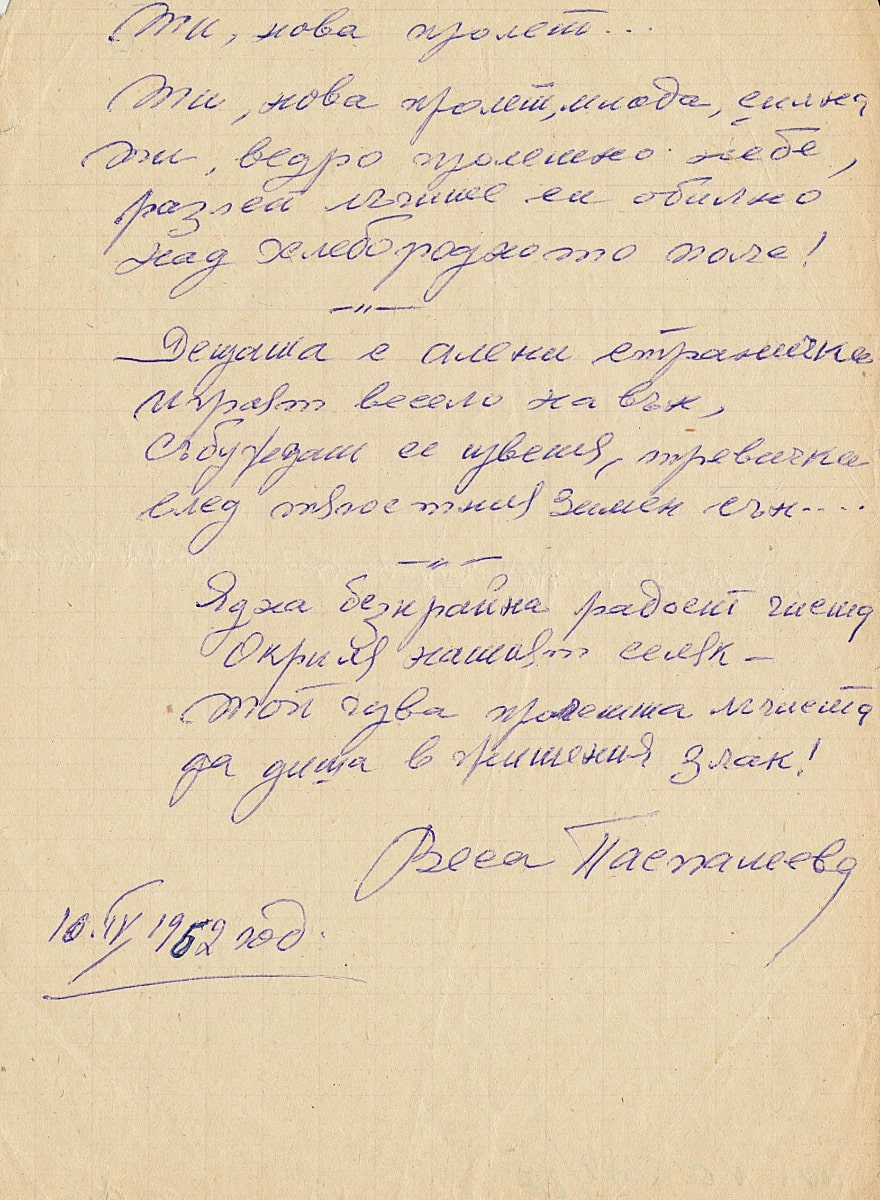 Ти, нова пролет...
Ти, нова пролет, млада, силна
ти, ведро пролетно небе,
разлей лъчите си обилно
над хлебородното поле!
—"—
Децата с алени странички
играят весело навън,
събуждат се цветя, тревички
след тягостния зимен сън....
—"—
Една безкрайна радост чиста
Окриля нашият селяк —
той чува пролетта лъчиста
да диша в житения злак!
Веса Паспалеева
10.IV 1952 год.